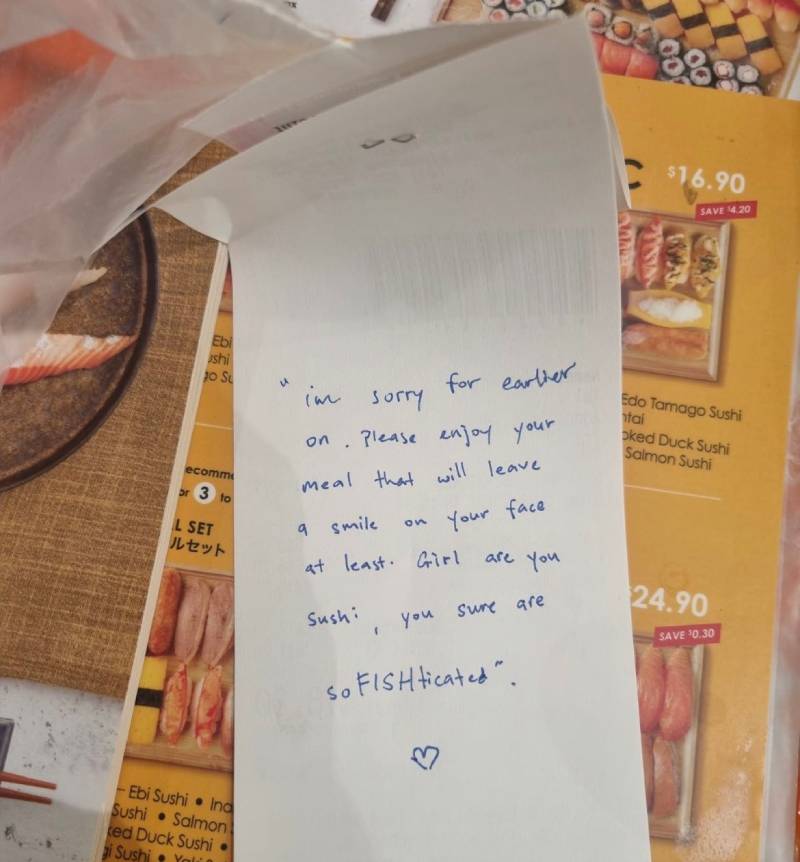 C $16.90
SAVE $4.20
" im sorry for earlier
on . Please enjoy your
meal that will leave
a smile on your face
at least. Girl are you
sushi , you sure are
soFISHticated ".
♡
Ebi
Edo Tamago Sushi
Duck Sushi
Salmon Sushi
3 to
L SET
ルセット
24.90
SAVE $0.30
Ebi Sushi •
Sushi • Salmon
Duck Sushi •
Sushi •